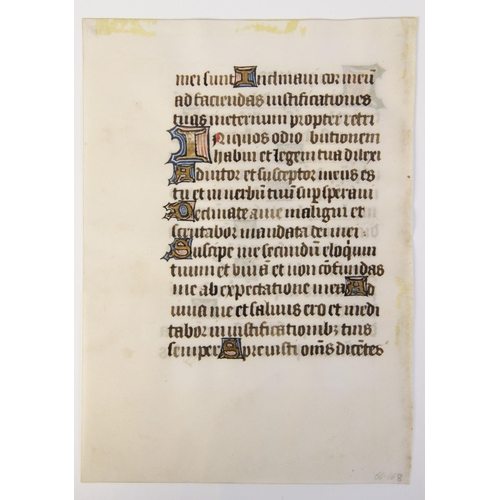 mei sunt Inclinavi cor meū
ad faciendas iustificationes
tuas ineternum propter retri
Iniquos odio butionem
habui et legem tua dilexi
Adiutor et susceptor meus es
tu et in verbū tuū supsperavi
Declinate a me maligni et
scrutabor mandata dei mei
Suscipe me secundū eloqui
tuum et viuā et non cōfundas
me ab expectatione mea Ad
iuua me et saluus ero et medi
tabor in iustificationibz tuis
semper Spreuisti om̄s discētes